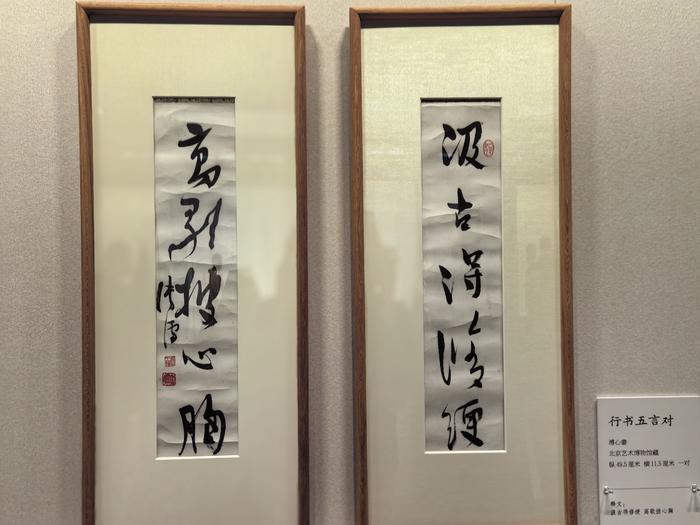 汲古得脩綆
高歌披心胸
溥儒
行书五言对
溥心畬
北京艺术博物馆藏
纵 49.5 厘米 横 11.5 厘米 一对
释文：
汲古得修绠 高歌披心胸